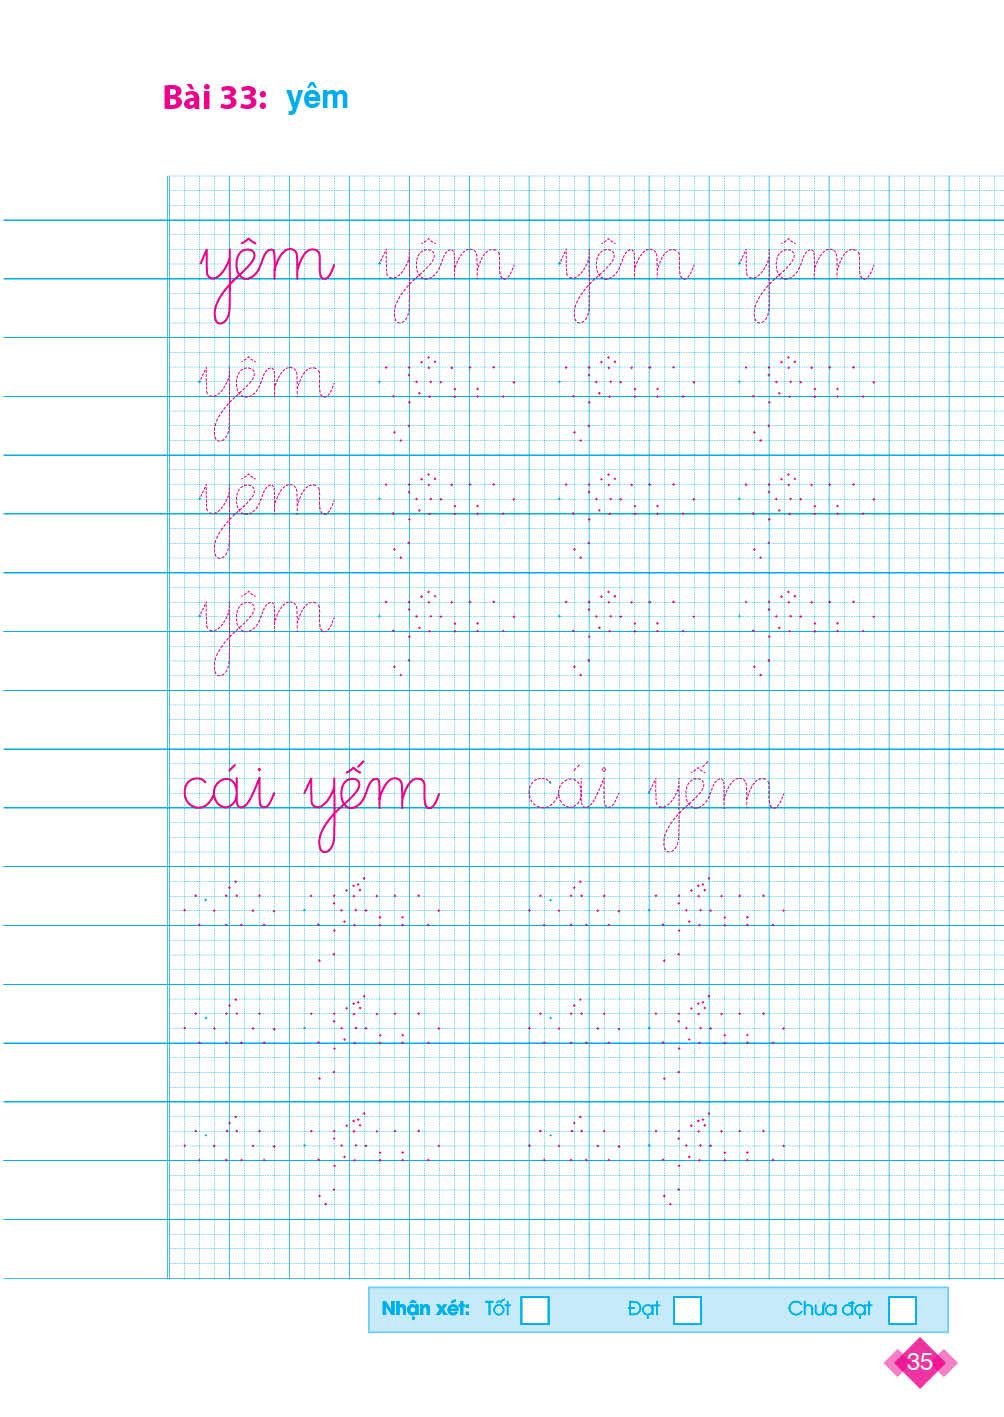 Bài 33: yêm
yêm yêm yêm yêm
yêm
yêm
yêm
cái yếm cái yếm
Nhận xét: Tốt Đạt Chưa đạt
35